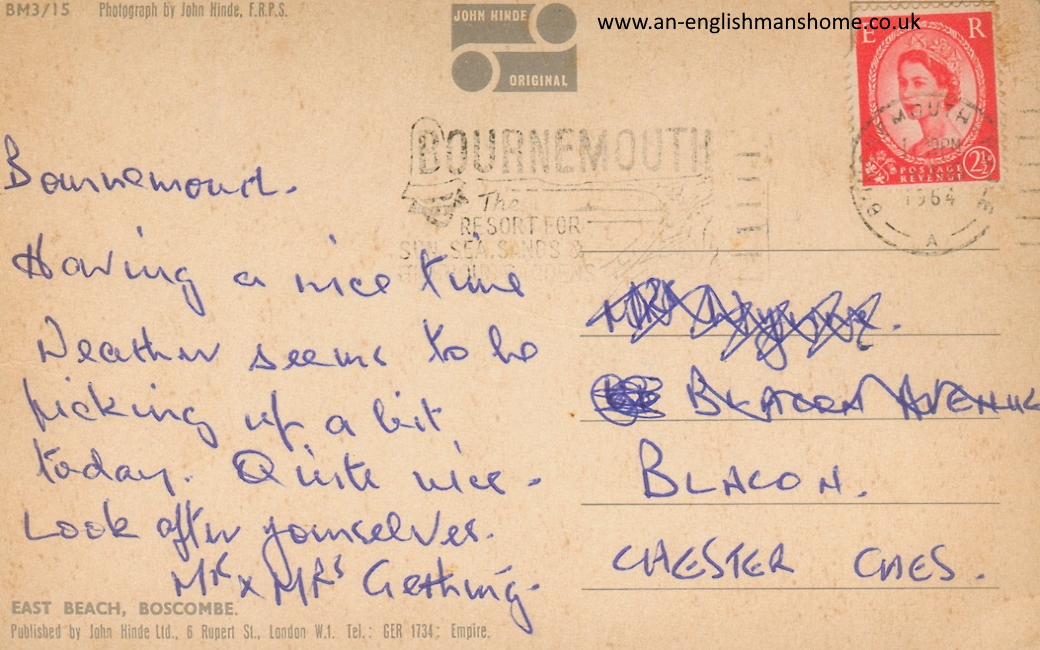 BM3/15 Photograph by John Hinde, F.R.P.S.
JOHN HINDE
ORIGINAL
www.an-englishmanshome.co.uk
E R
POSTAGE
REVENUE
2½
MOUTH
1964
A
BOURNEMOUTH
The
RESORT FOR
SUN, SEA, SANDS &
Bournemouth.
Having a nice time
Weather seems to be
picking up a bit
today. Quite nice.
Look after yourselves.
Mr & Mrs Gething.
BLACON AVENUE
BLACON.
CHESTER CHES.
EAST BEACH, BOSCOMBE.
Published by John Hinde Ltd., 6 Rupert St., London W.1. Tel.: GER 1734; Empire.